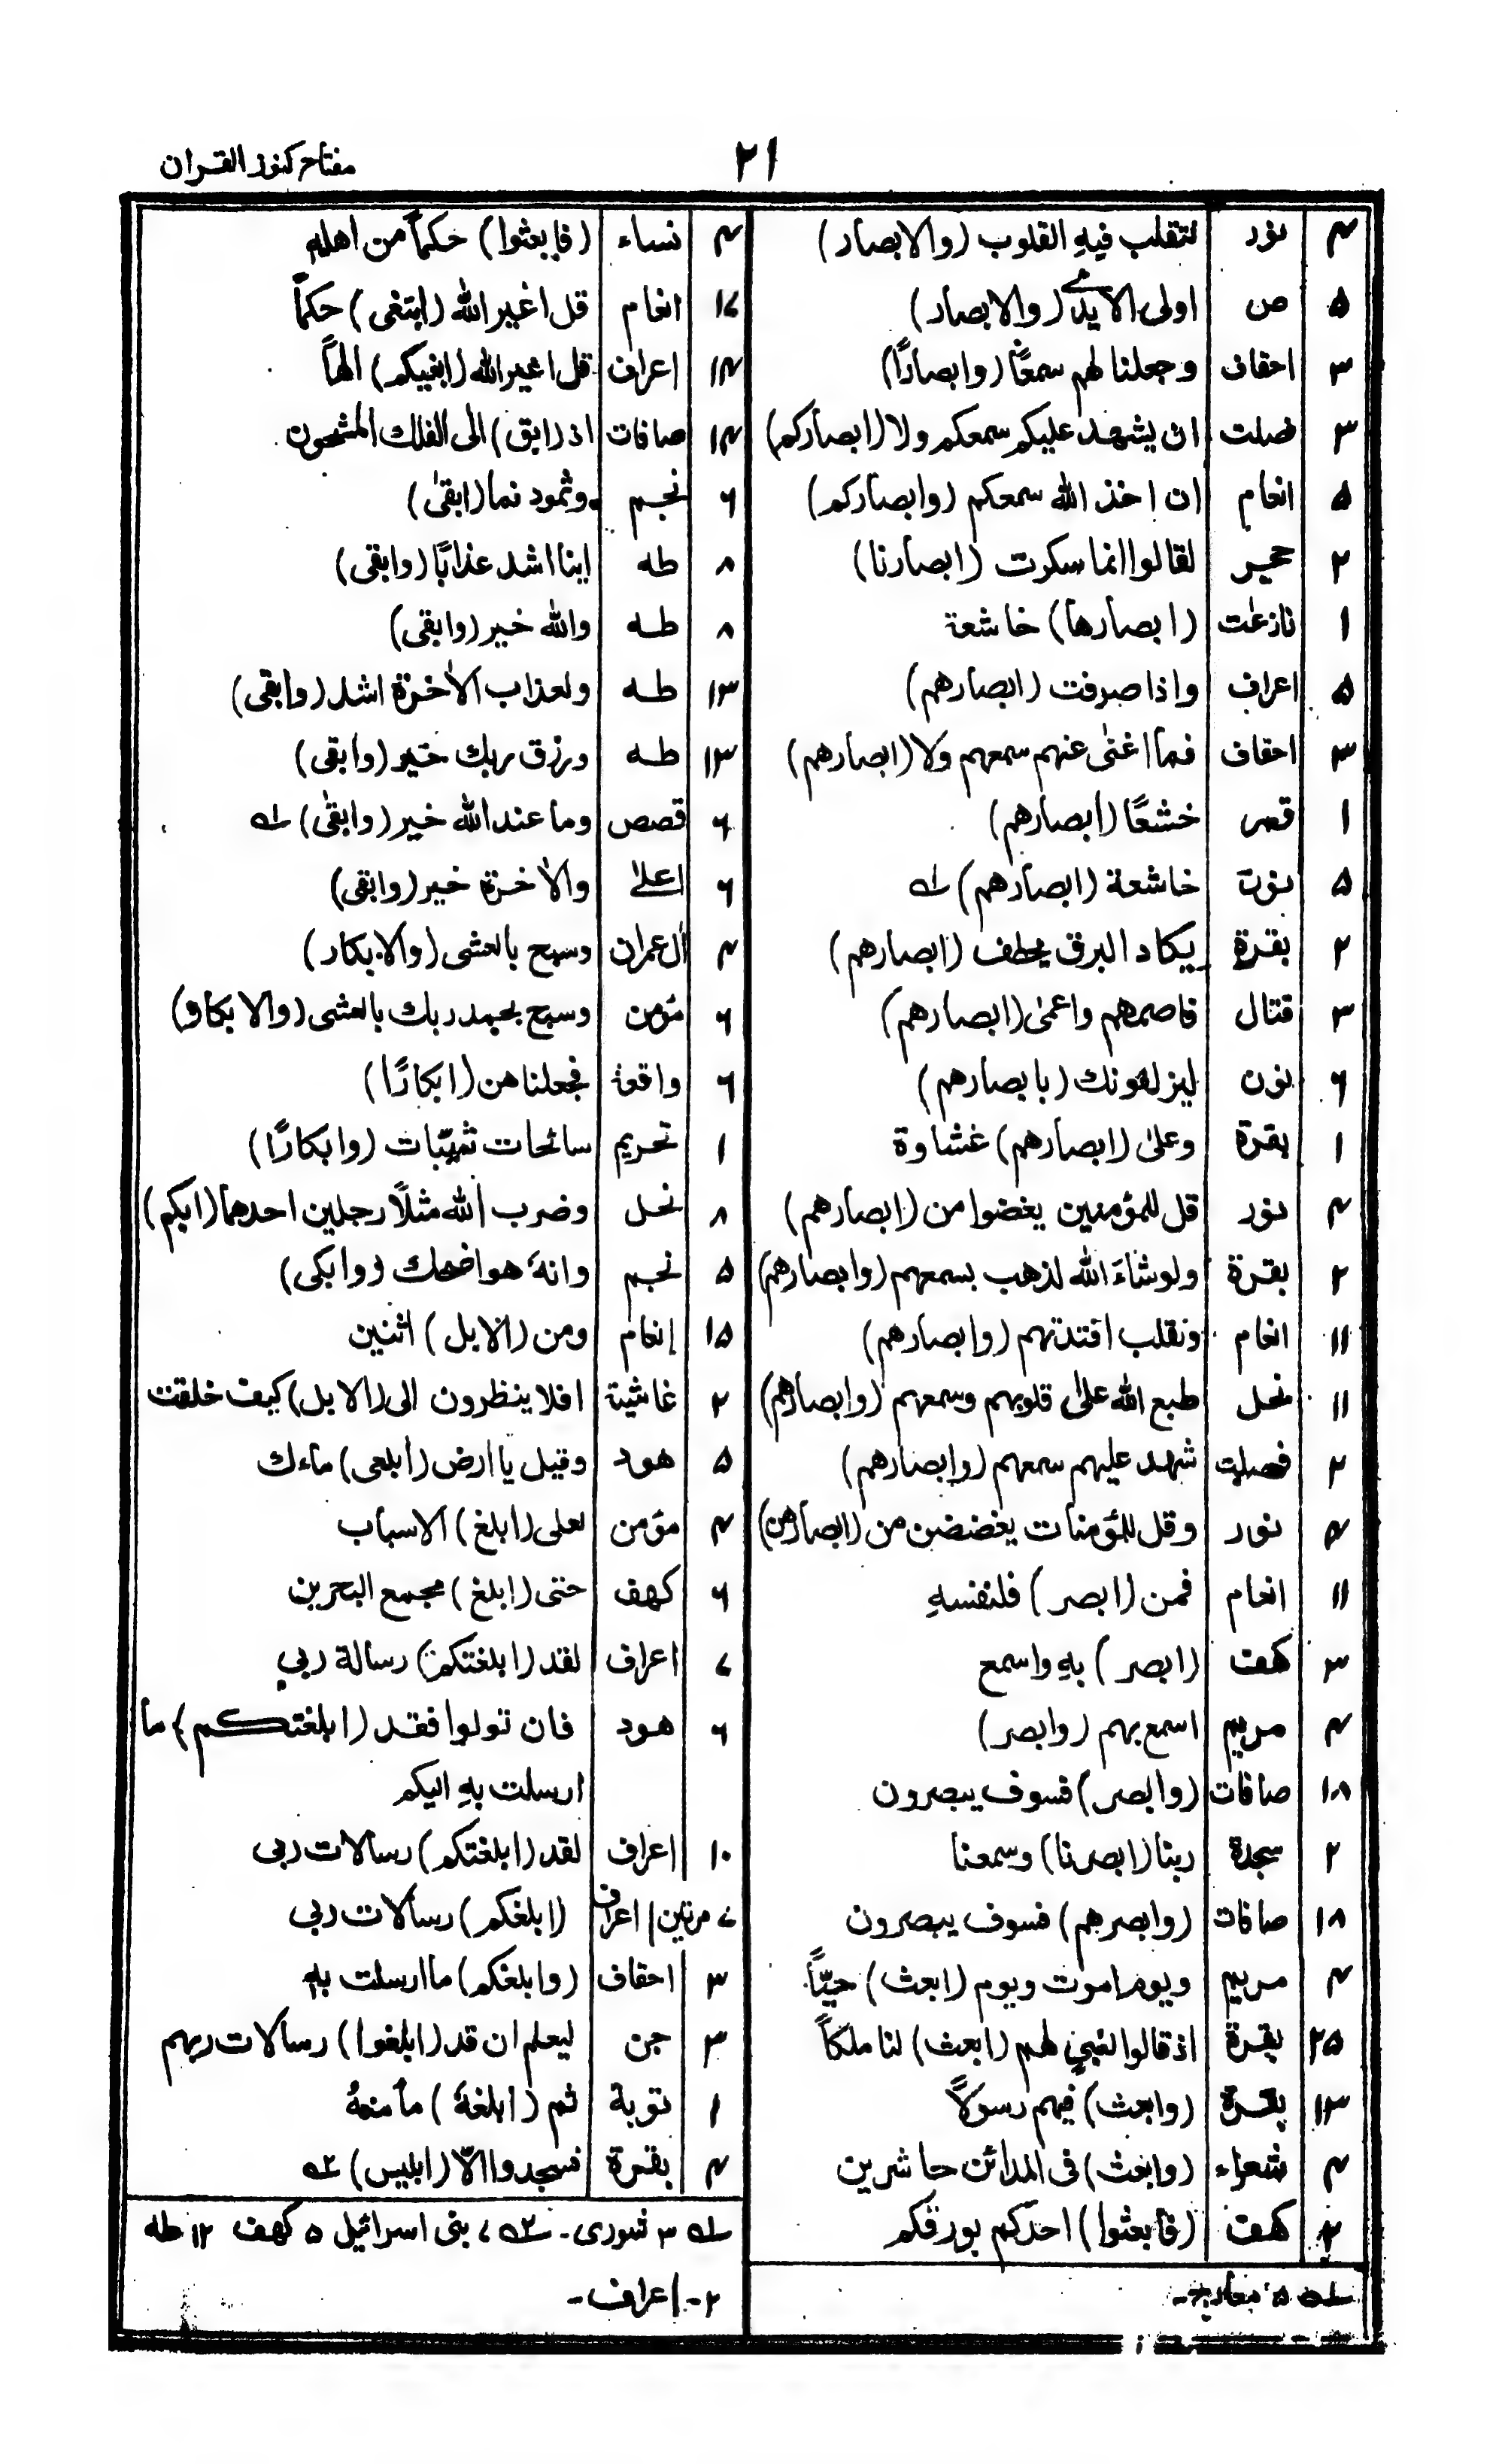 ٢١
مفتاح كنوز القران
٤ نور لتتقلب فيهِ القلوب (والابصار)
۵ ص اولى الايدى (والابصار)
٣ احقاف وجعلنا لهم سمعًا (وابصارًا)
٣ فصلت ان يشهد عليكم سمعكم ولا (ابصاركم)
۵ انعام ان اخذ الله سمعكم (وابصاركم)
٢ حجر لقالوا انما سكرت (ابصارنا)
١ نازعٰت (ابصارها) خاشعة
۵ اعراف واذا صرفت (ابصارهم)
٣ احقاف فما اغنٰى عنهم سمعهم ولا (ابصارهم)
١ قمر خشعًا (ابصارهم)
۵ نون خاشعة (ابصارهم) له
٢ بقرة يكاد البرق يخطف (ابصارهم)
٣ قتال فاصمهم واعمٰى (ابصارهم)
٦ نون ليزلقونك (بابصارهم)
١ بقرة وعلٰى (ابصارهم) غشاوة
٤ نور قل للمؤمنين يغضوا من (ابصارهم)
٢ بقرة ولوشاءَ الله لذهب بسمعهم (وابصارهم)
١١ انعام ونقلب افئدتهم (وابصارهم)
١١ نحل طبع الله علٰى قلوبهم وسمعهم (وابصارهم)
٢ فصلت شهد عليهم سمعهم (وابصارهم)
٤ نور وقل للمؤمنات يغضضن من (ابصارهن)
١١ انعام فمن (ابصر) فلنفسهِ
٣ كهف (ابصر) بهِ واسمع
٤ مريم اسمع بهم (وابصر)
١٨ صافات (وابصر) فسوف يبصرون
٢ سجدة ربنا (ابصرنا) وسمعنا
١٨ صافات (وابصرهم) فسوف يبصرون
٤ مريم ويوم اموت ويوم (ابعث) حيّاً
٢۵ بقرة اذ قالوا لنبيٍ لهم (ابعث) لنا ملكاً
١٣ بقرة (وابعث) فيهم رسولاً
٤ شعراء (وابعث) فى المدائن حاشرين
٢ كهف (فابعثوا) احدكم بورقكم
له ۵ معارج-
٤ نساء (فابعثوا) حكماً من اهله
١٤ انعام قل اغير الله (ابتغى) حكماً
١٤ اعراف قل اغير الله (ابغيكم) الهاً
١٤ صافات اذ (ابق) الى الفلك المشحون
٦ نجم وثمود فما (ابقىٰ)
٨ طه اينا اشد عذابًا (وابقى)
٨ طه والله خير (وابقى)
١٣ طه ولعذاب الاٰخرة اشد (وابقى)
١٣ طه ورزق ربك خير (وابقى)
٦ قصص وما عند الله خير (وابقىٰ) له
٦ اعلےٰ والاٰخرة خير (وابقى)
٤ اٰل عمران وسبح بالعشى (والابكار)
٦ مؤمن وسبح بحمد ربك بالعشى (والابكار)
٦ واقعة فجعلناهن (ابكارًا)
١ تحريم سائحات ثيّبات (وابكارًا)
٨ نحل وضرب الله مثلًا رجلين احدهما (ابكم)
۵ نجم وانهٗ هو اضحك (وابكى)
١۵ انعام ومن (الابل) اثنين
٢ غاشية افلا ينظرون الى (الابل) كيف خلقت
۵ هود وقيل يا ارض (ابلعى) ماءك
٤ مؤمن لعلى (ابلغ) الاسباب
٦ كهف حتى (ابلغ) مجمع البحرين
٧ اعراف لقد (ابلغتكم) رسالة ربي
٦ هود فان تولوا فقد (ابلغتكم) ما
ارسلت بهِ اليكم
١٠ اعراف لقد (ابلغتكم) رسالات ربى
٧ مرتين اعراف (ابلغكم) رسالات ربى
٣ احقاف (وابلغكم) ما ارسلت بهِ
٣ جن ليعلم ان قد (ابلغوا) رسالات ربهم
١ توبة ثم (ابلغهٗ) مأمنهٗ
٤ بقرة فسجدوا الّا (ابليس) ٢ه
له ٣ شورى- ٢ه ٧ بنى اسرائيل ۵ كهف ١٢ طه
٢- اعراف-